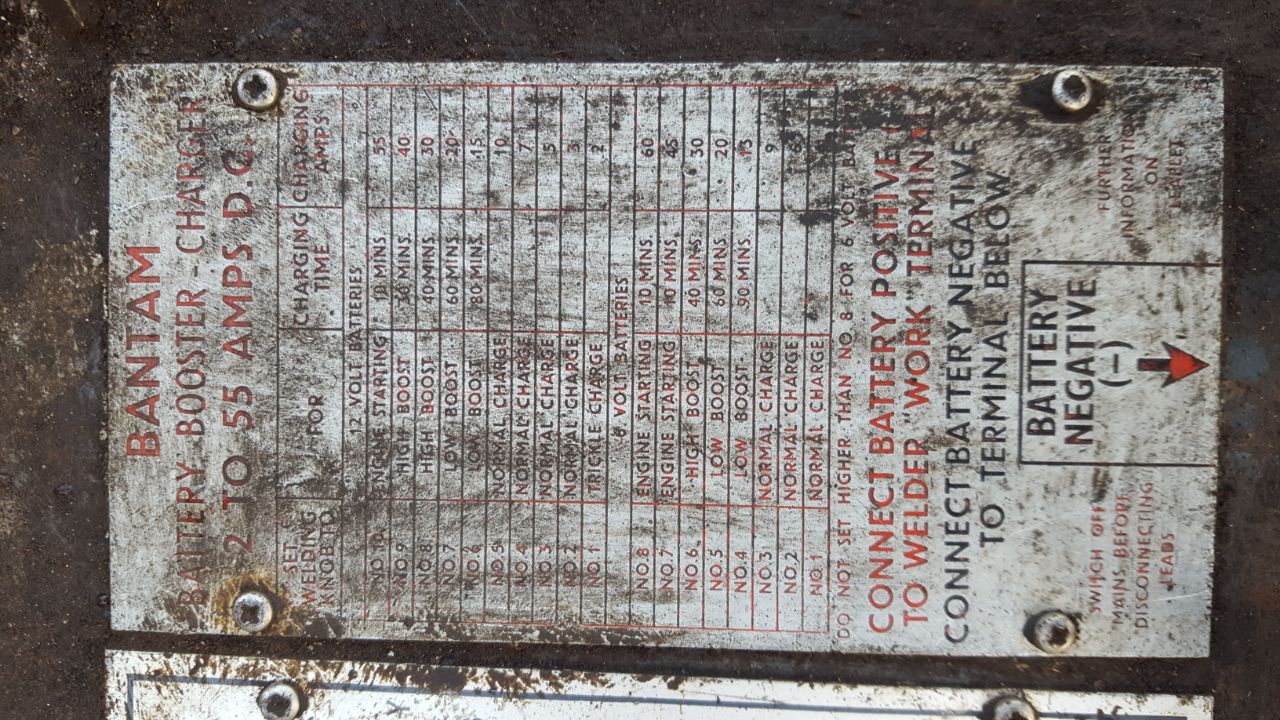 BANTAM
BATTERY BOOSTER-CHARGER
2 TO 55 AMPS D.C.
SET WELDING KNOB TO FOR CHARGING TIME CHARGING AMPS
12 VOLT BATTERIES
NO.10 ENGINE STARTING 10 MINS 55
NO.9 HIGH BOOST 30 MINS. 40
NO.8 HIGH BOOST 40 MINS. 30
NO.7 LOW BOOST 60 MINS. 20
NO.6 LOW BOOST 80 MINS. 15
NO.5 NORMAL CHARGE 10
NO.4 NORMAL CHARGE 7
NO.3 NORMAL CHARGE 5
NO.2 NORMAL CHARGE 3
NO.1 TRICKLE CHARGE 2
6 VOLT BATTERIES
NO.8 ENGINE STARTING 10 MINS. 60
NO.7 ENGINE STARTING 10 MINS. 45
NO.6 HIGH BOOST 40 MINS. 30
NO.5 LOW BOOST 60 MINS 20
NO.4 LOW BOOST 90 MINS. 15
NO.3 NORMAL CHARGE 9
NO.2 NORMAL CHARGE
NO.1 NORMAL CHARGE
DO NOT SET HIGHER THAN NO.8 FOR 6 VOLT
CONNECT BATTERY POSITIVE
TO WELDER "WORK" TERMINAL
CONNECT BATTERY NEGATIVE
TO TERMINAL BELOW
SWITCH OFF
MAINS BEFORE
DISCONNECTING
LEADS
BATTERY
NEGATIVE
(-)
FURTHER
INFORMATION
ON
LEAFLET